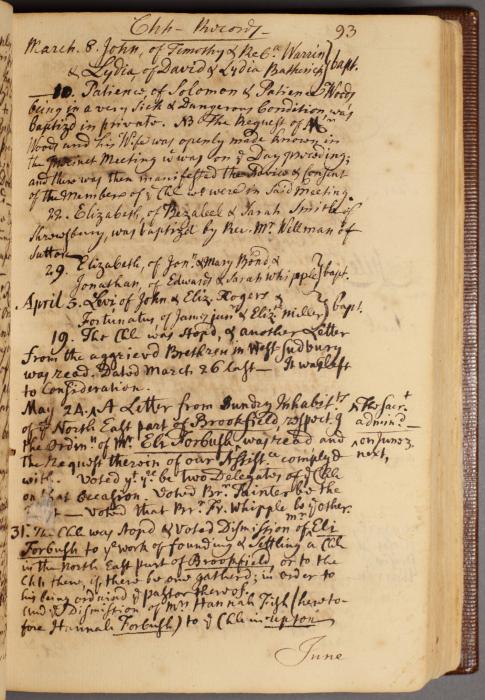 Chh - Records. 93
March. 8. John, of Timothy & Reb.a Warrin
& Lydia, of David & Lydia Batherick } bapt.
10. Patience, of Solomon & Patience Woods
being in a very Sick & Dangerous Condition was
baptizd in private. NB The Request of Mr
Woods and his Wife was openly made known in
the precinct Meeting wc was on ye Day preceeding;
and there was then manifested the Advice & Consent
of the Members of ye Chh wc were in Said Meeting
22. Elizabeth, of Bezaleel & Sarah Smith of
Shrewsbury, was baptized by Rev. Mr Wellman of
Sutton
29. Elizabeth, of Jon.n & Mary Bond &
Jonathan, of Edward & Sarah Whipple } bapt.
April 5. Levi of John & Eliz. Rogers &
Fortunatus of James jun.r & Eliz. Miller } bapt.
19. The Chh was Stopd, & another Letter
from the aggrievd Brethren in West Sudbury
was read. Dated March 26 last — It was left
to Consideration.
May 24. ^ A Letter from Sundry Inhabit.ts
of ye North East part of Brookfield respect.g
the Ordin.n of Mr. Eli Forbush, was read and
the Request therein of our Assist.ce complyd
with. Voted yt yr be two Delegates of ye Chh
on that occasion. Voted Br. Tainter be the
— Voted that Br. Fr. Whipple be ye other
^ The Sacr.t
admin.d —
^ on June 3.
next,
31. The Chh was Stopd & Voted Dismission of Mr Eli
Forbush to ye work of founding & Settling a Chh
in the North East part of Brookfield, or to the
Chh there, if there be one gatherd; in order to
his being ordaind ye pastor thereof.
(and ye Dismission of Mrs Hannah Fish (hereto-
fore Hannah Forbush) to ye Chh in upton
June